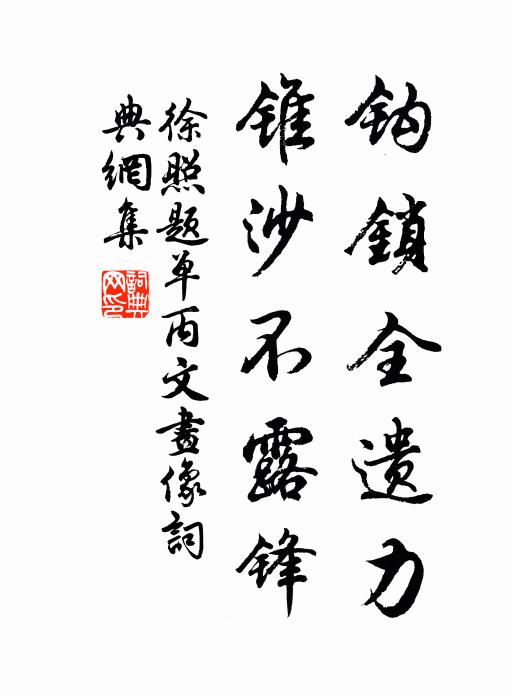 鈎鎖全遺力
錐沙不露鋒
徐照题单丙文畫像詞
典網集
詞典网印